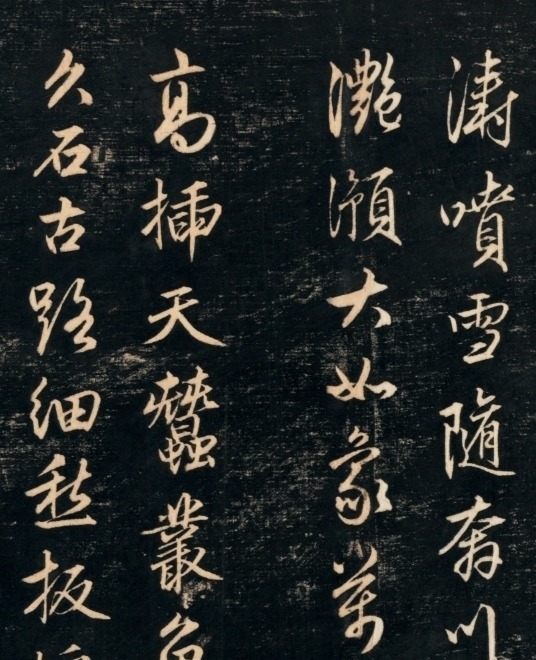 涛噴雪隨奔川
灩澦大如象萬
高插天蠶叢鳥
久石古路細愁扳